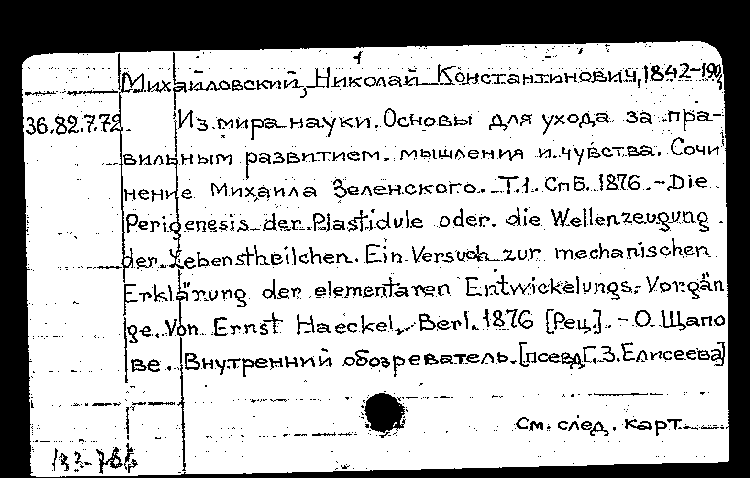 Михайловский, Николай Константинович, 1842-190
36.82.7.72. Из мира науки. Основы для ухода за пра-
вильным развитием. мышления и чувства. Сочи
нение Михаила Зеленского. Т.1. СПБ. 1876. - Die
Perigenesis der Plastidule oder. die Wellenzeugung
der Lebenstheilchen. Ein Versuch zur mechanischen
Erklärung der elementaren Entwickelungs-Vorgän
ge. Von Ernst Haeckel. Berl. 1876 [Рец.]. - О Щапо
ве. Внутренний обозреватель. [псевд Г.З. Елисеева]
См. след. карт.